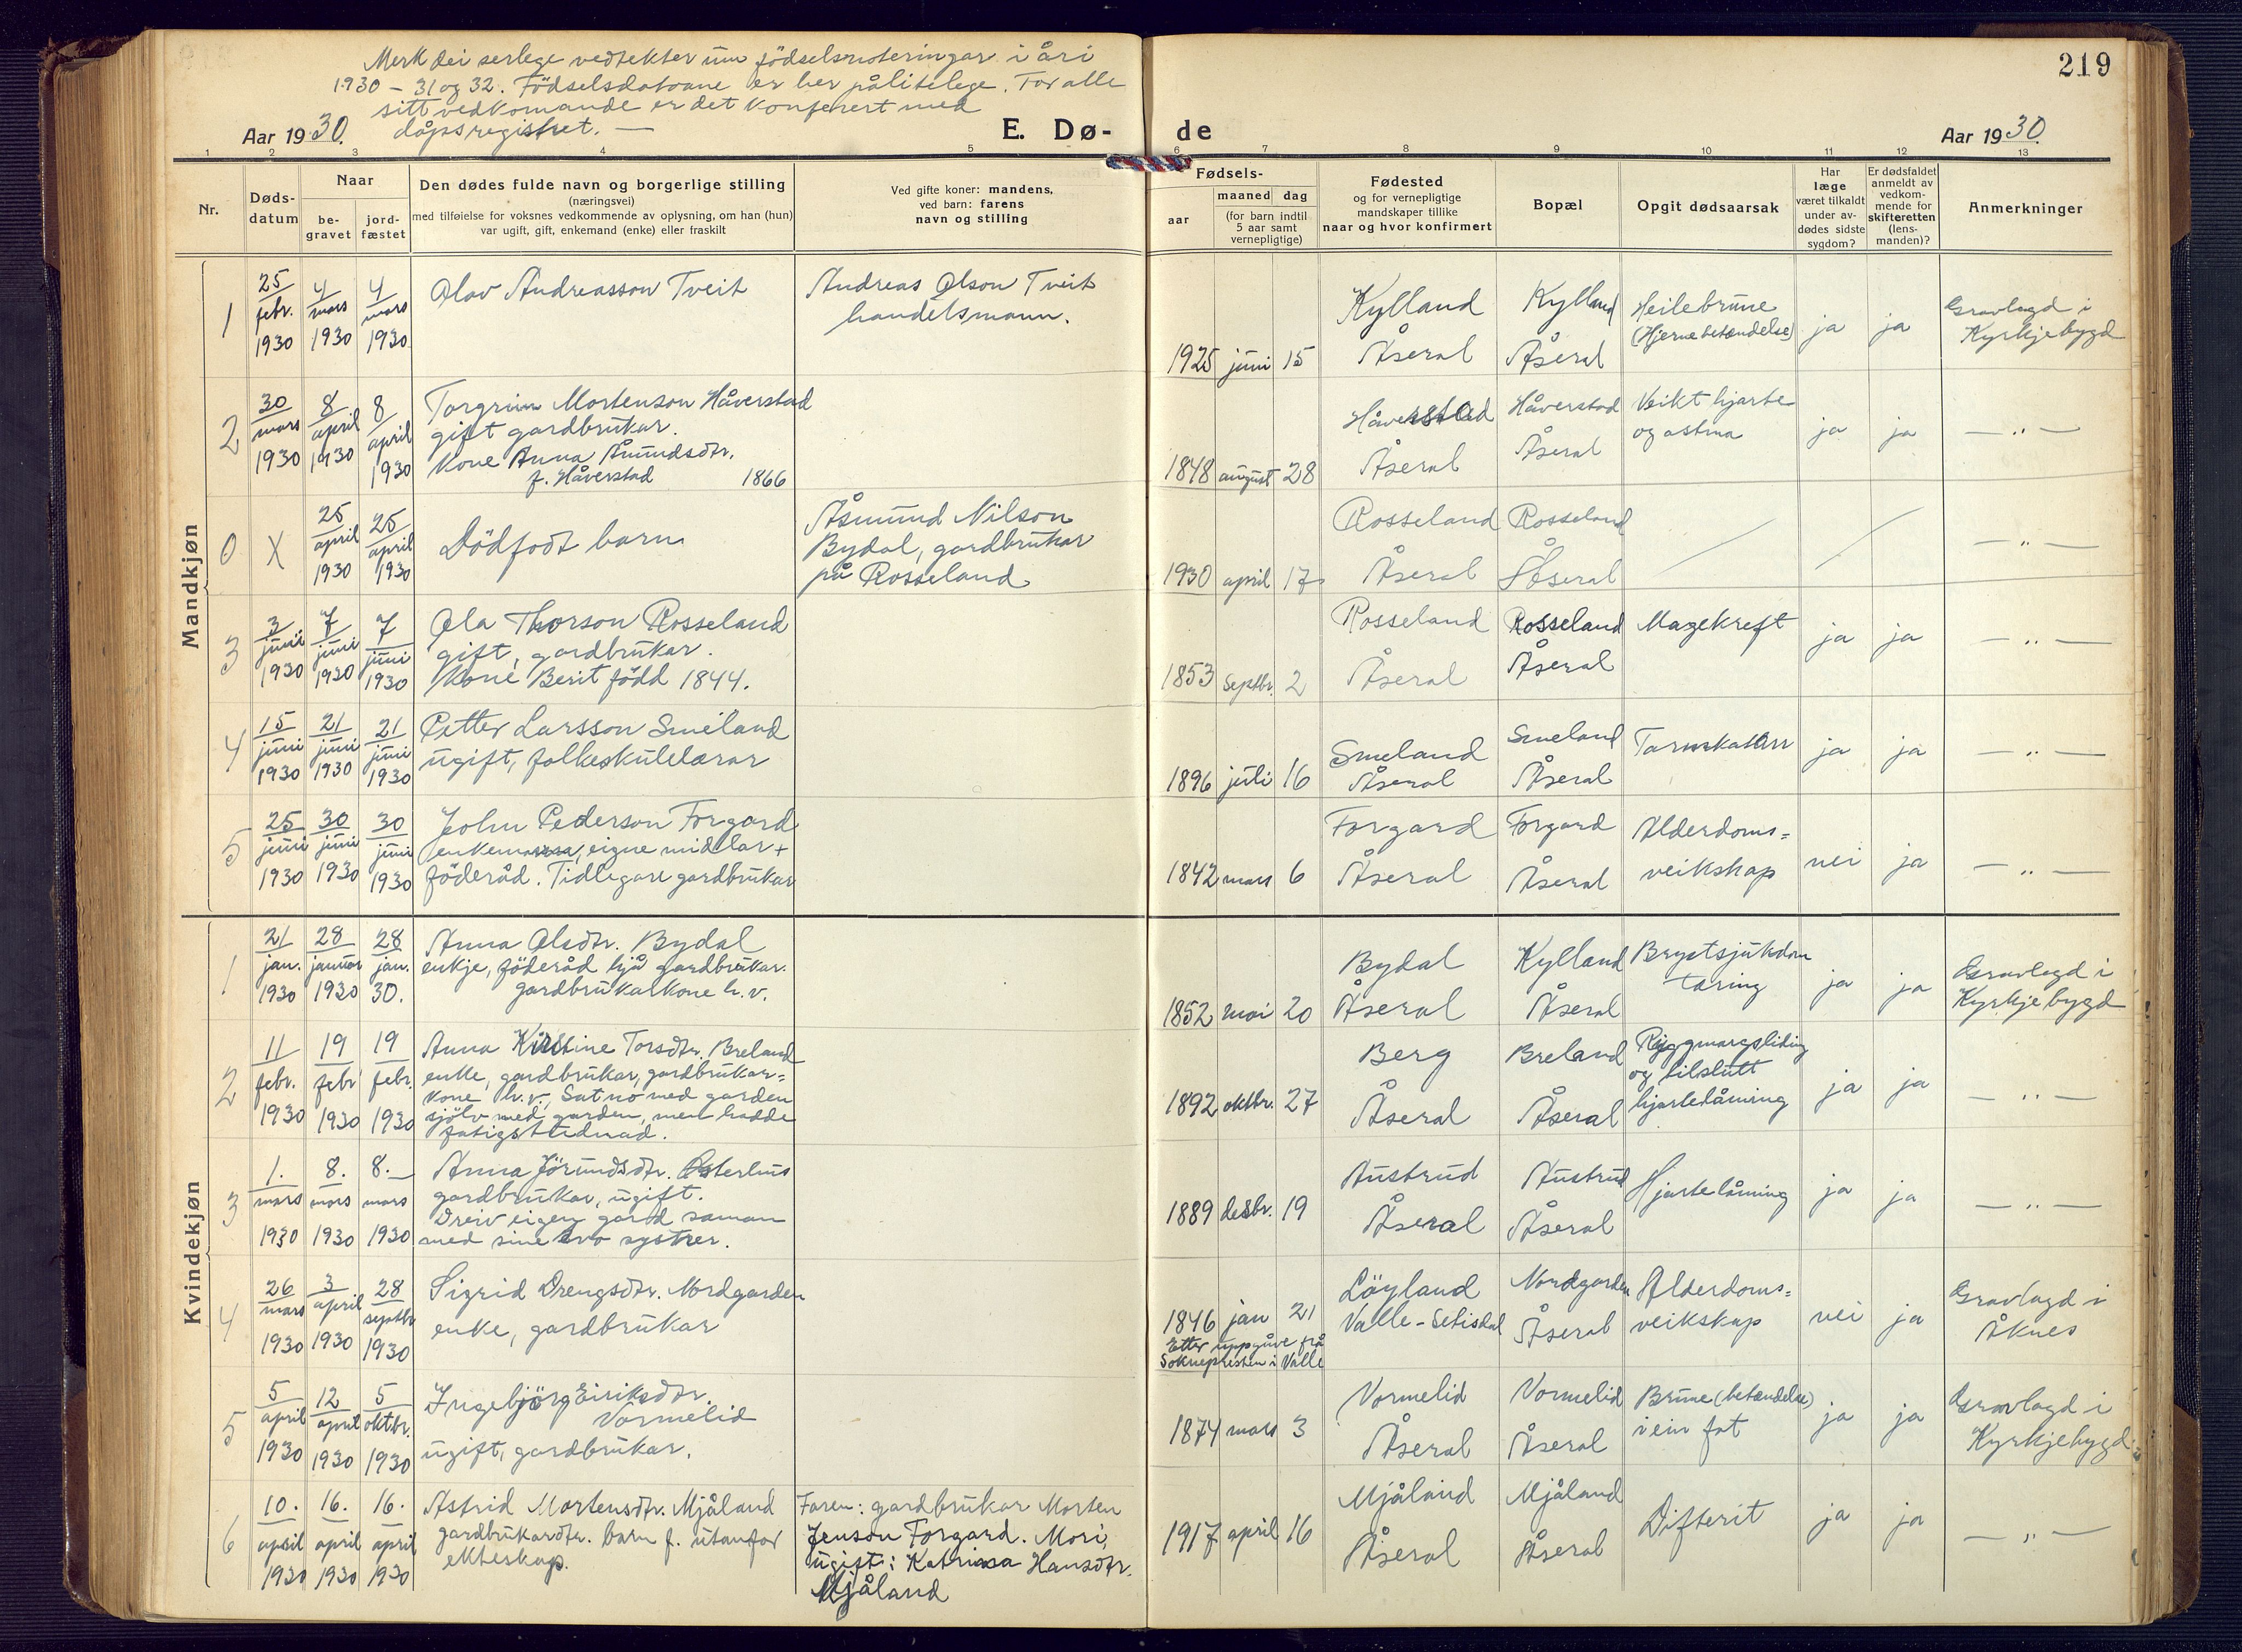 Merk dei serlege vedtekter um födselsnoteringar i åri
1930 – 31 og 32. Födselsdatoane er her pålitelege. For alle
sitt vedkomande er det konferert med
dåpsregistret. —
219
Aar 1930.
E. Dø-
de
Aar 1930.
1 2 3 4 5 6 7 8 9 10 11 12 13
Nr.
Døds-
datum
Naar
be-
gravet
jord-
fæstet
Den dødes fulde navn og borgerlige stilling
(næringsvei)
med tilføielse for voksnes vedkommende av oplysning, om han (hun)
var ugift, gift, enkemand (enke) eller fraskilt
Ved gifte koner: mandens,
ved barn: farens
navn og stilling
Fødsels-
aar
maaned dag
(for barn indtil
5 aar samt
vernepligtige)
Fødested
og for vernepligtige
mandskaper tillike
naar og hvor konfirmert
Bopæl
Opgit dødsaarsak
Har
læge
været tilkaldt
under av-
dødes sidste
sygdom?
Er dødsfaldet
anmeldt av
vedkom-
mende for
skifteretten
(lens-
manden)?
Anmerkninger
Mandkjøn
1
25
febr.
1930
4
mars
1930
4
mars
1930
Olav Andreasson Tveit
Andreas Olson Tveit
handelsmann.
1925 juni 15
Kylland
Åseral
Kylland
Åseral
Heilebrune
(Hjernebetændelse)
ja
ja
Gravlagd i
Kyrkjebygd
2
30
mars
1930
8
april
1930
8
april
1930
Torgrim Mortenson Håverstad
gift gardbrukar.
Kone Anna Åmundsdtr.
f. Håverstad 1866
1848 august 28
Håverstad
Åseral
Håverstad
Åseral
Veikt hjarte
og astma
ja
ja
— " —
0
X
25
april
1930
25
april
1930
Dödfödt barn
Åsmund Nilson
Bydal, gardbrukar
på Rosseland
1930 april 17
Rosseland
Åseral
Rosseland
Åseral
— " —
3
3
juni
1930
7
juni
1930
7
juni
1930
Ola Thorson Rosseland
gift, gardbrukar.
Kone Berit född 1844.
1853 septbr. 2
Rosseland
Åseral
Rosseland
Åseral
Magekreft
ja
ja
— " —
4
15
juni
1930
21
juni
1930
21
juni
1930
Petter Larsson Smeland
ugift, folkeskulelærar
1896 juli 16
Smeland
Åseral
Smeland
Åseral
Tarmskatarr
ja
ja
— " —
5
25
juni
1930
30
juni
1930
30
juni
1930
John Pederson Forgard
enkemann, eigne midlar +
föderåd. Tidlegare gardbrukar
1842 mars 6
Forgard
Åseral
Forgard
Åseral
Alderdoms=
veikskap
nei
ja
— " —
Kvindekjøn
1
21
jan.
1930
28
januar
1930
28
jan.
30.
Anna Olsdtr. Bydal
enkje, föderåd hjå gardbrukar.
gardbrukarkone h.v.
1852 mai 20
Bydal
Åseral
Kylland
Åseral
Brystsjukdom
tæring
ja
ja
Gravlagd i
Kyrkjebygd
2
11
febr.
1930
19
febr
1930
19
febr.
1930
Anna Kirstine Torsdtr. Breland
enke, gardbrukar, gardbrukar=
kone h.v., Sat no med garden
sjölv med garden, men hadde
fatigstudnad.
1892 oktbr. 27
Berg
Åseral
Breland
Åseral
Ryggmargsliding
og tilslutt
hjartelåming
ja
ja
— " —
3
1.
mars
1930
8.
mars
1930
8.—
mars
1930
Anna Jörundsdtr. Østerhus
gardbrukar, ugift.
Dreiv eigen gard saman
med sine tvo systrer.
1889 desbr. 19
Austrud
Åseral
Austrud
Åseral
Hjartelåming
ja
ja
— " —
4
26
mars
1930
3
april
1930
28
septbr
1930
Sigrid Drengsdtr. Nordgarden
enke, gardbrukar
1846 jan 21
Etter uppgåve frå
Soknepresten i Valle
Löyland
Valle-Setisdal
Nordgarden
Åseral
Alderdoms=
veikskap
nei
ja
Gravlagd i
Åknes
5
5
april
1930
12
april
1930
5
oktbr.
1930
Ingebjörg Eiriksdtr.
Vormelid
ugift, gardbrukar.
1874 mars 3
Vormelid
Åseral
Vormelid
Åseral
Brune (betændelse)
i ein fot
ja
ja
Gravlagd i
Kyrkjebygd
6
10.
april
1930
16.
april
1930
16.
april
1930
Astrid Mortensdtr. Mjåland
gardbrukardtr. barn f. utanfor
ekteskap.
Faren: gardbrukar Morten
Jenson Forgard. Mori,
ugift: Katrina Hansdtr.
Mjåland
1917 april 16
Mjåland
Åseral
Mjåland
Åseral
Difterit
ja
ja
— " —